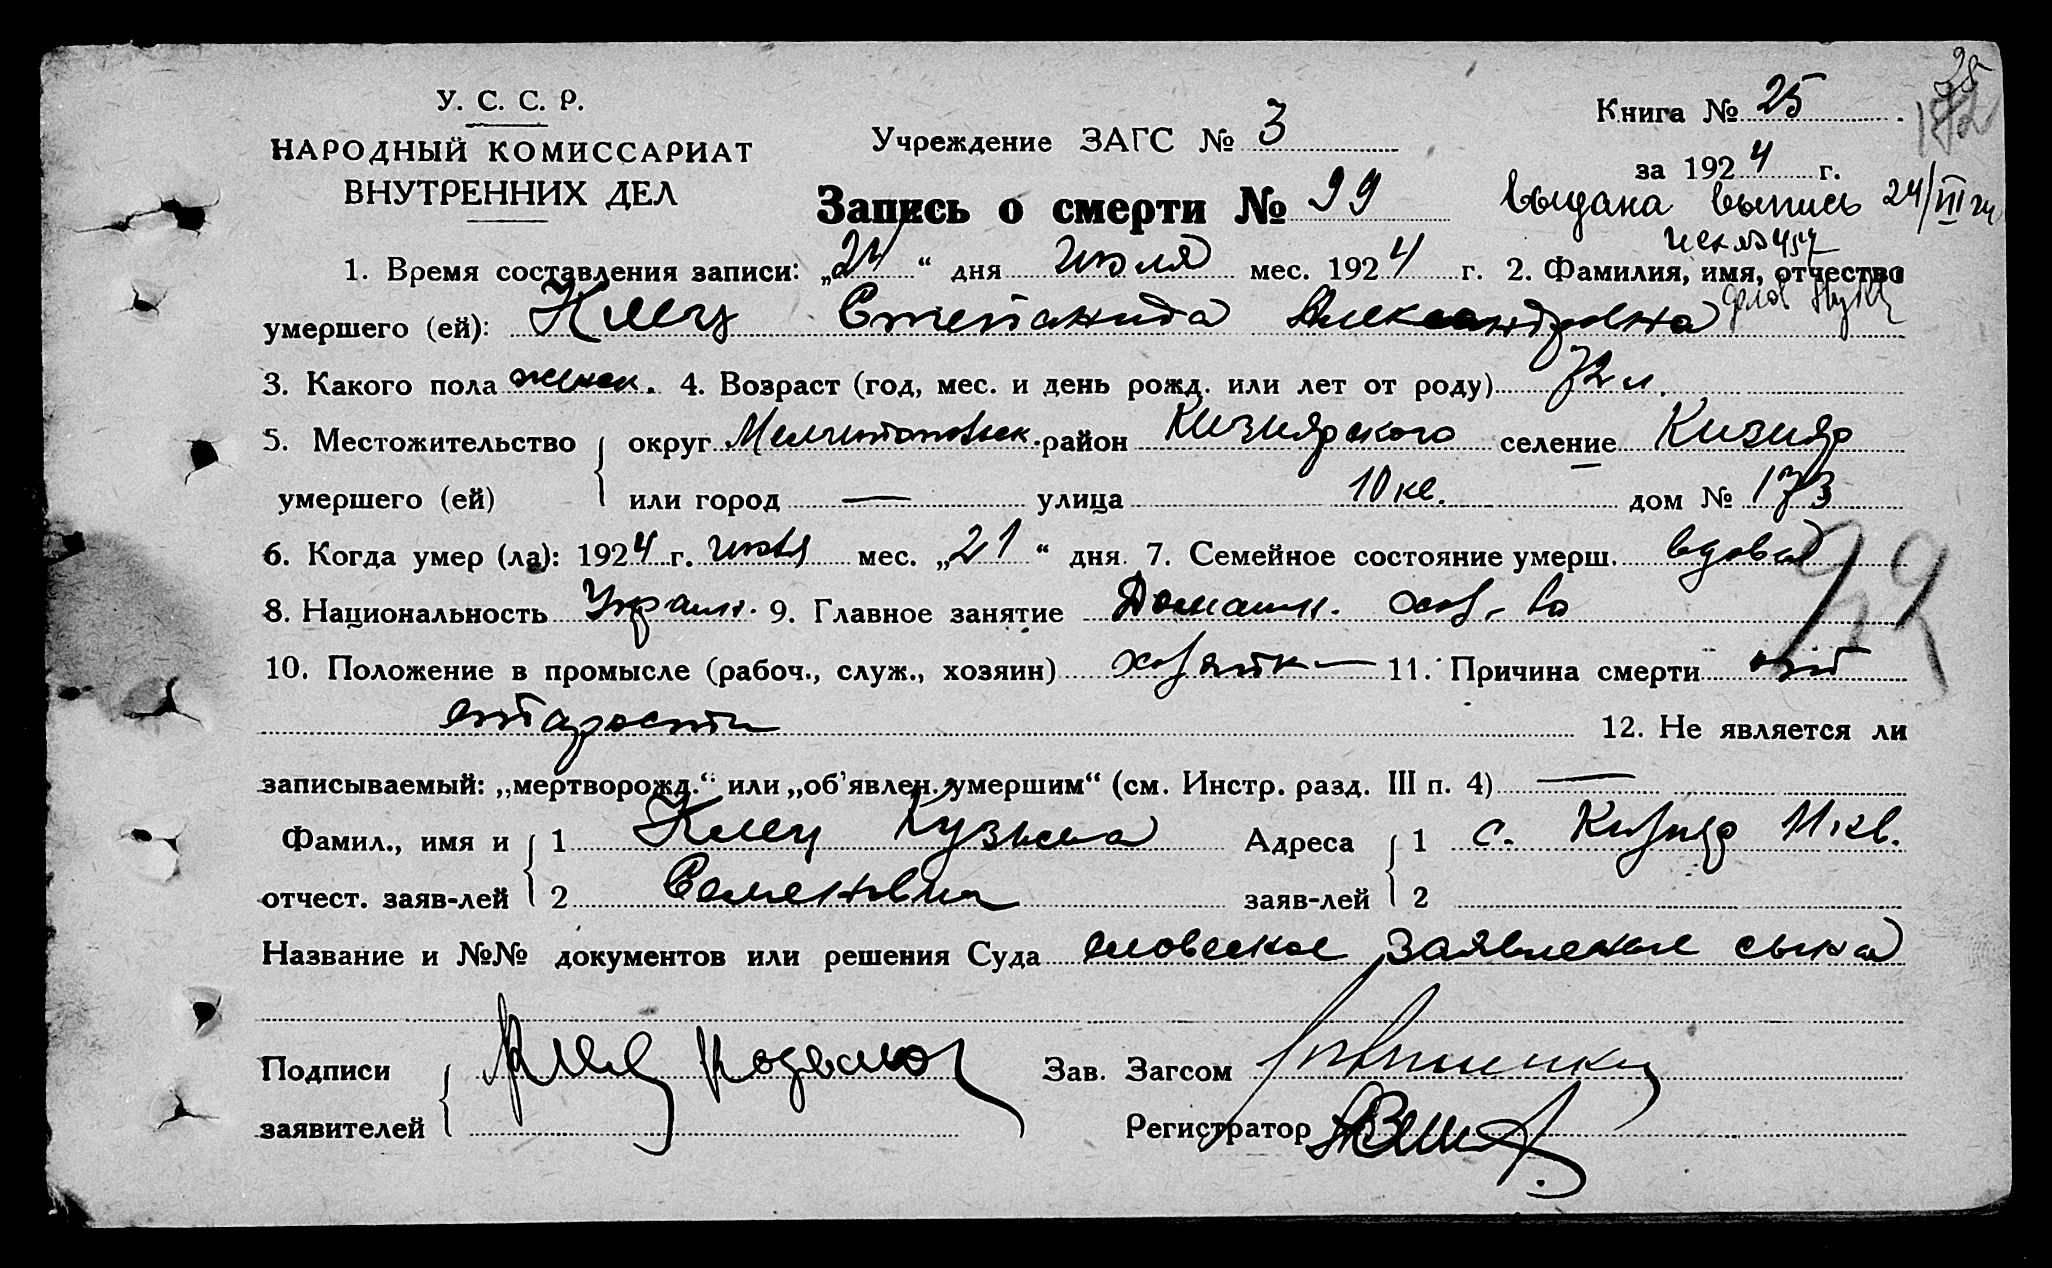 У. С. С. Р.
НАРОДНЫЙ КОМИССАРИАТ
ВНУТРЕННИХ ДЕЛ
Учреждение ЗАГС № 3
Книга № 25
за 1924 г.
Запись о смерти № 99
выдана выпись 24/VII 24
1. Время составления записи: „24“ дня июля мес. 1924 г. 2. Фамилия, имя, отчество
умершего (ей): Клец Степанида Александровна
3. Какого пола женск. 4. Возраст (год, мес. и день рожд. или лет от роду) 72 л.
5. Местожительство округ Мелитопольск. район Кизиярского селение Кизияр
умершего (ей) или город — улица 10 кв. дом № 173
6. Когда умер (ла): 1924 г. июля мес. „21“ дня. 7. Семейное состояние умерш. вдова
8. Национальность Украин. 9. Главное занятие Домашн. хоз-во
10. Положение в промысле (рабоч., служ., хозяин) хозяйк— 11. Причина смерти от
старости 12. Не является ли
записываемый: „мертворожд.“ или „об'явлен. умершим“ (см. Инстр. разд. III п. 4) —
Фамил., имя и 1 Клец Кузьма Адреса 1 с. Кизияр 11 кв.
отчест. заяв-лей 2 Семенович заяв-лей 2
Название и №№ документов или решения Суда словесное заявление сына
Подписи Клец Зав. Загсом
заявителей Регистратор
99